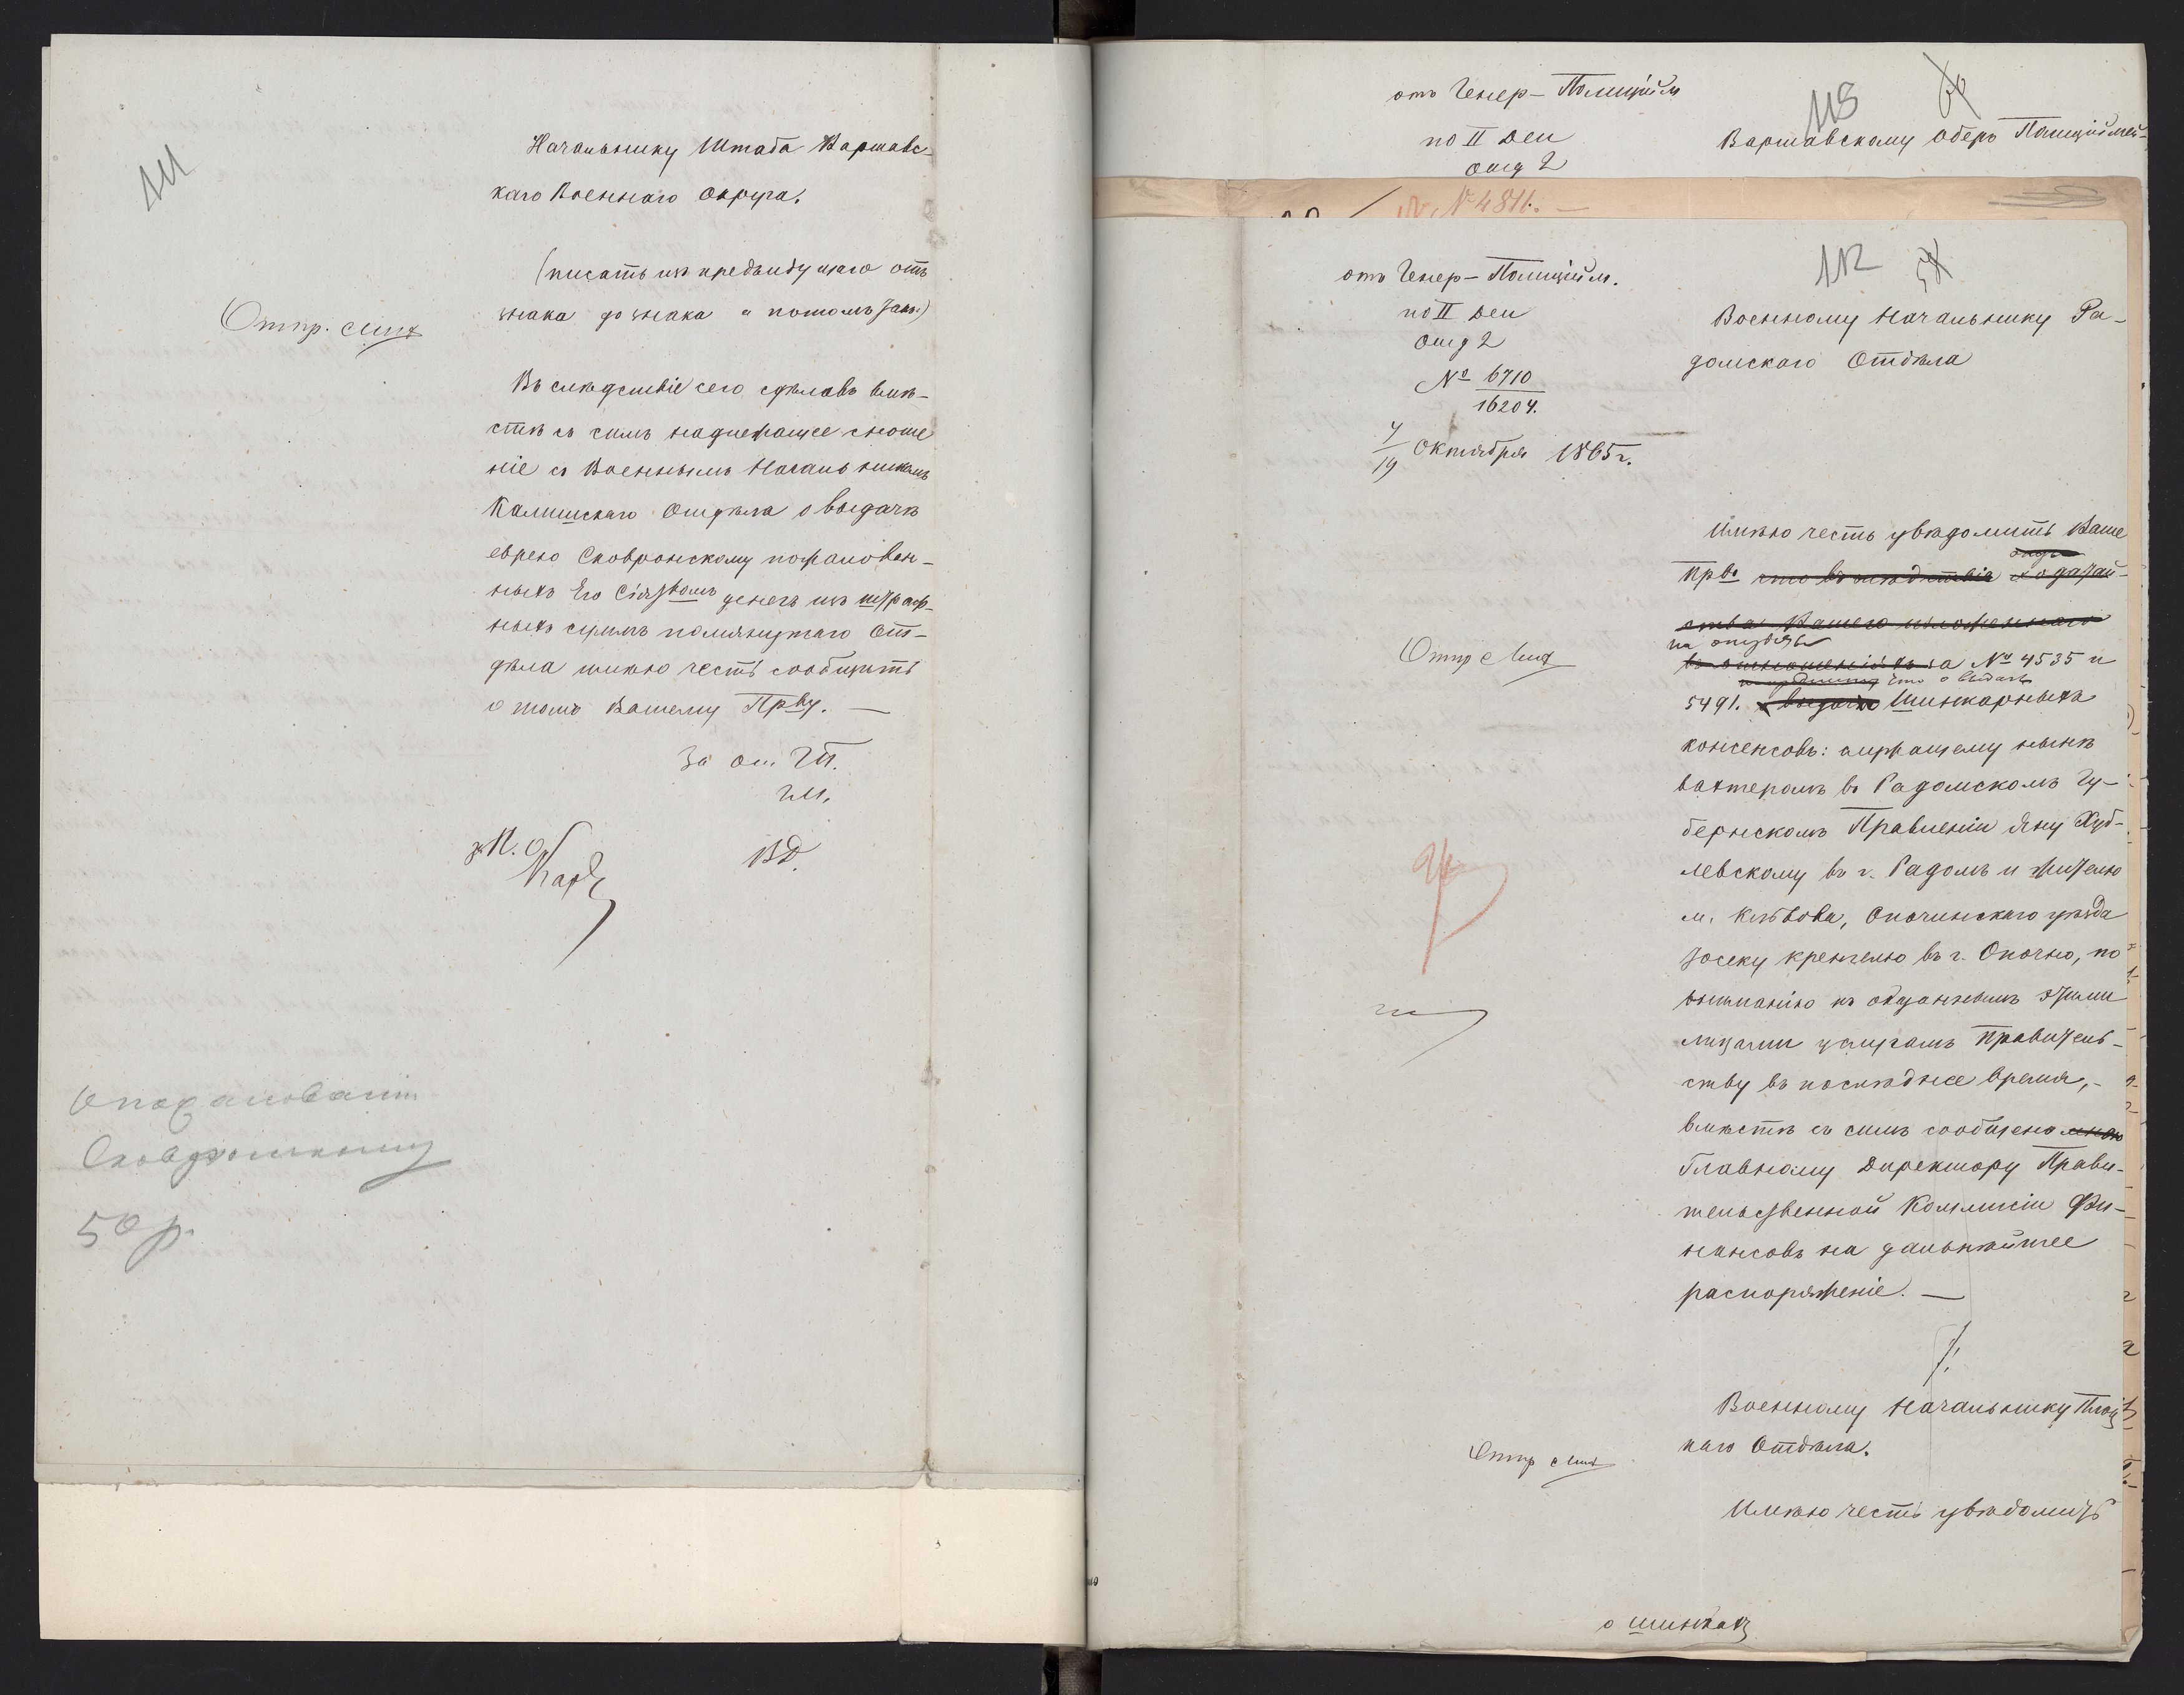 111
Начальнику Штаба Варшавс-
каго Военнаго Округа.
(писать изъ предъидущаго отъ
знака до знака а потомъ такъ)
Отпр.
Въ слѣдствіе сего сдѣлавъ вмѣ-
стѣ съ симъ надлежащее сноше
ніе съ Военнымъ Начальникомъ
Калишскаго Отдѣла о выдачѣ
еврею Сковронскому пожалован-
ныхъ Его Сіятвомъ денегъ изъ штраф-
ныхъ суммъ помянутаго От-
дѣла имѣю честь сообщить
о томъ Вашему Прву. —
За от. ГП.
ВД.
О пожалованіи
Сковронскому
50 р.
отъ Генер-Полиційм
по II Деп
отд 2
113
Варшавскому Оберъ Полиціймей-
№ 4811. —
112
отъ Генер-Полиційм.
по II Деп
отд 2
№ 6710
16204.
7
19 Октября 1865 г.
Военному Начальнику Ра-
домскаго Отдѣла
Имѣю честь увѣдомить Ваше
Прво что въ слѣдствіе ходатай-
ства Вашего изложеннаго
на отзывы
въ отношеніяхъ за № 4535 и
что о выдачѣ
5491. о выдачѣ Шинкарныхъ
консенсовъ: служащему нынѣ
вахтеромъ въ Радомскомъ Гу-
бернскомъ Правленіи Яну Хуб-
левскому въ г. Радомѣ и жителю
м. Клвова, Опочинскаго уѣзда
Іосеку Кренгелю въ г. Опочно, по
вниманію къ оказаннымъ этими
лицами услугамъ Правитель-
ству въ послѣднее время, -
вмѣстѣ съ симъ сообщено мною
Главному Директору Прави-
тельственной Коммисіи Фи-
нансовъ на дальнѣйшее
распоряженіе. —
Отпр
Военному Начальнику Плоц
каго Отдѣла.
Отпр
Имѣю честь увѣдомить
о шинкахъ